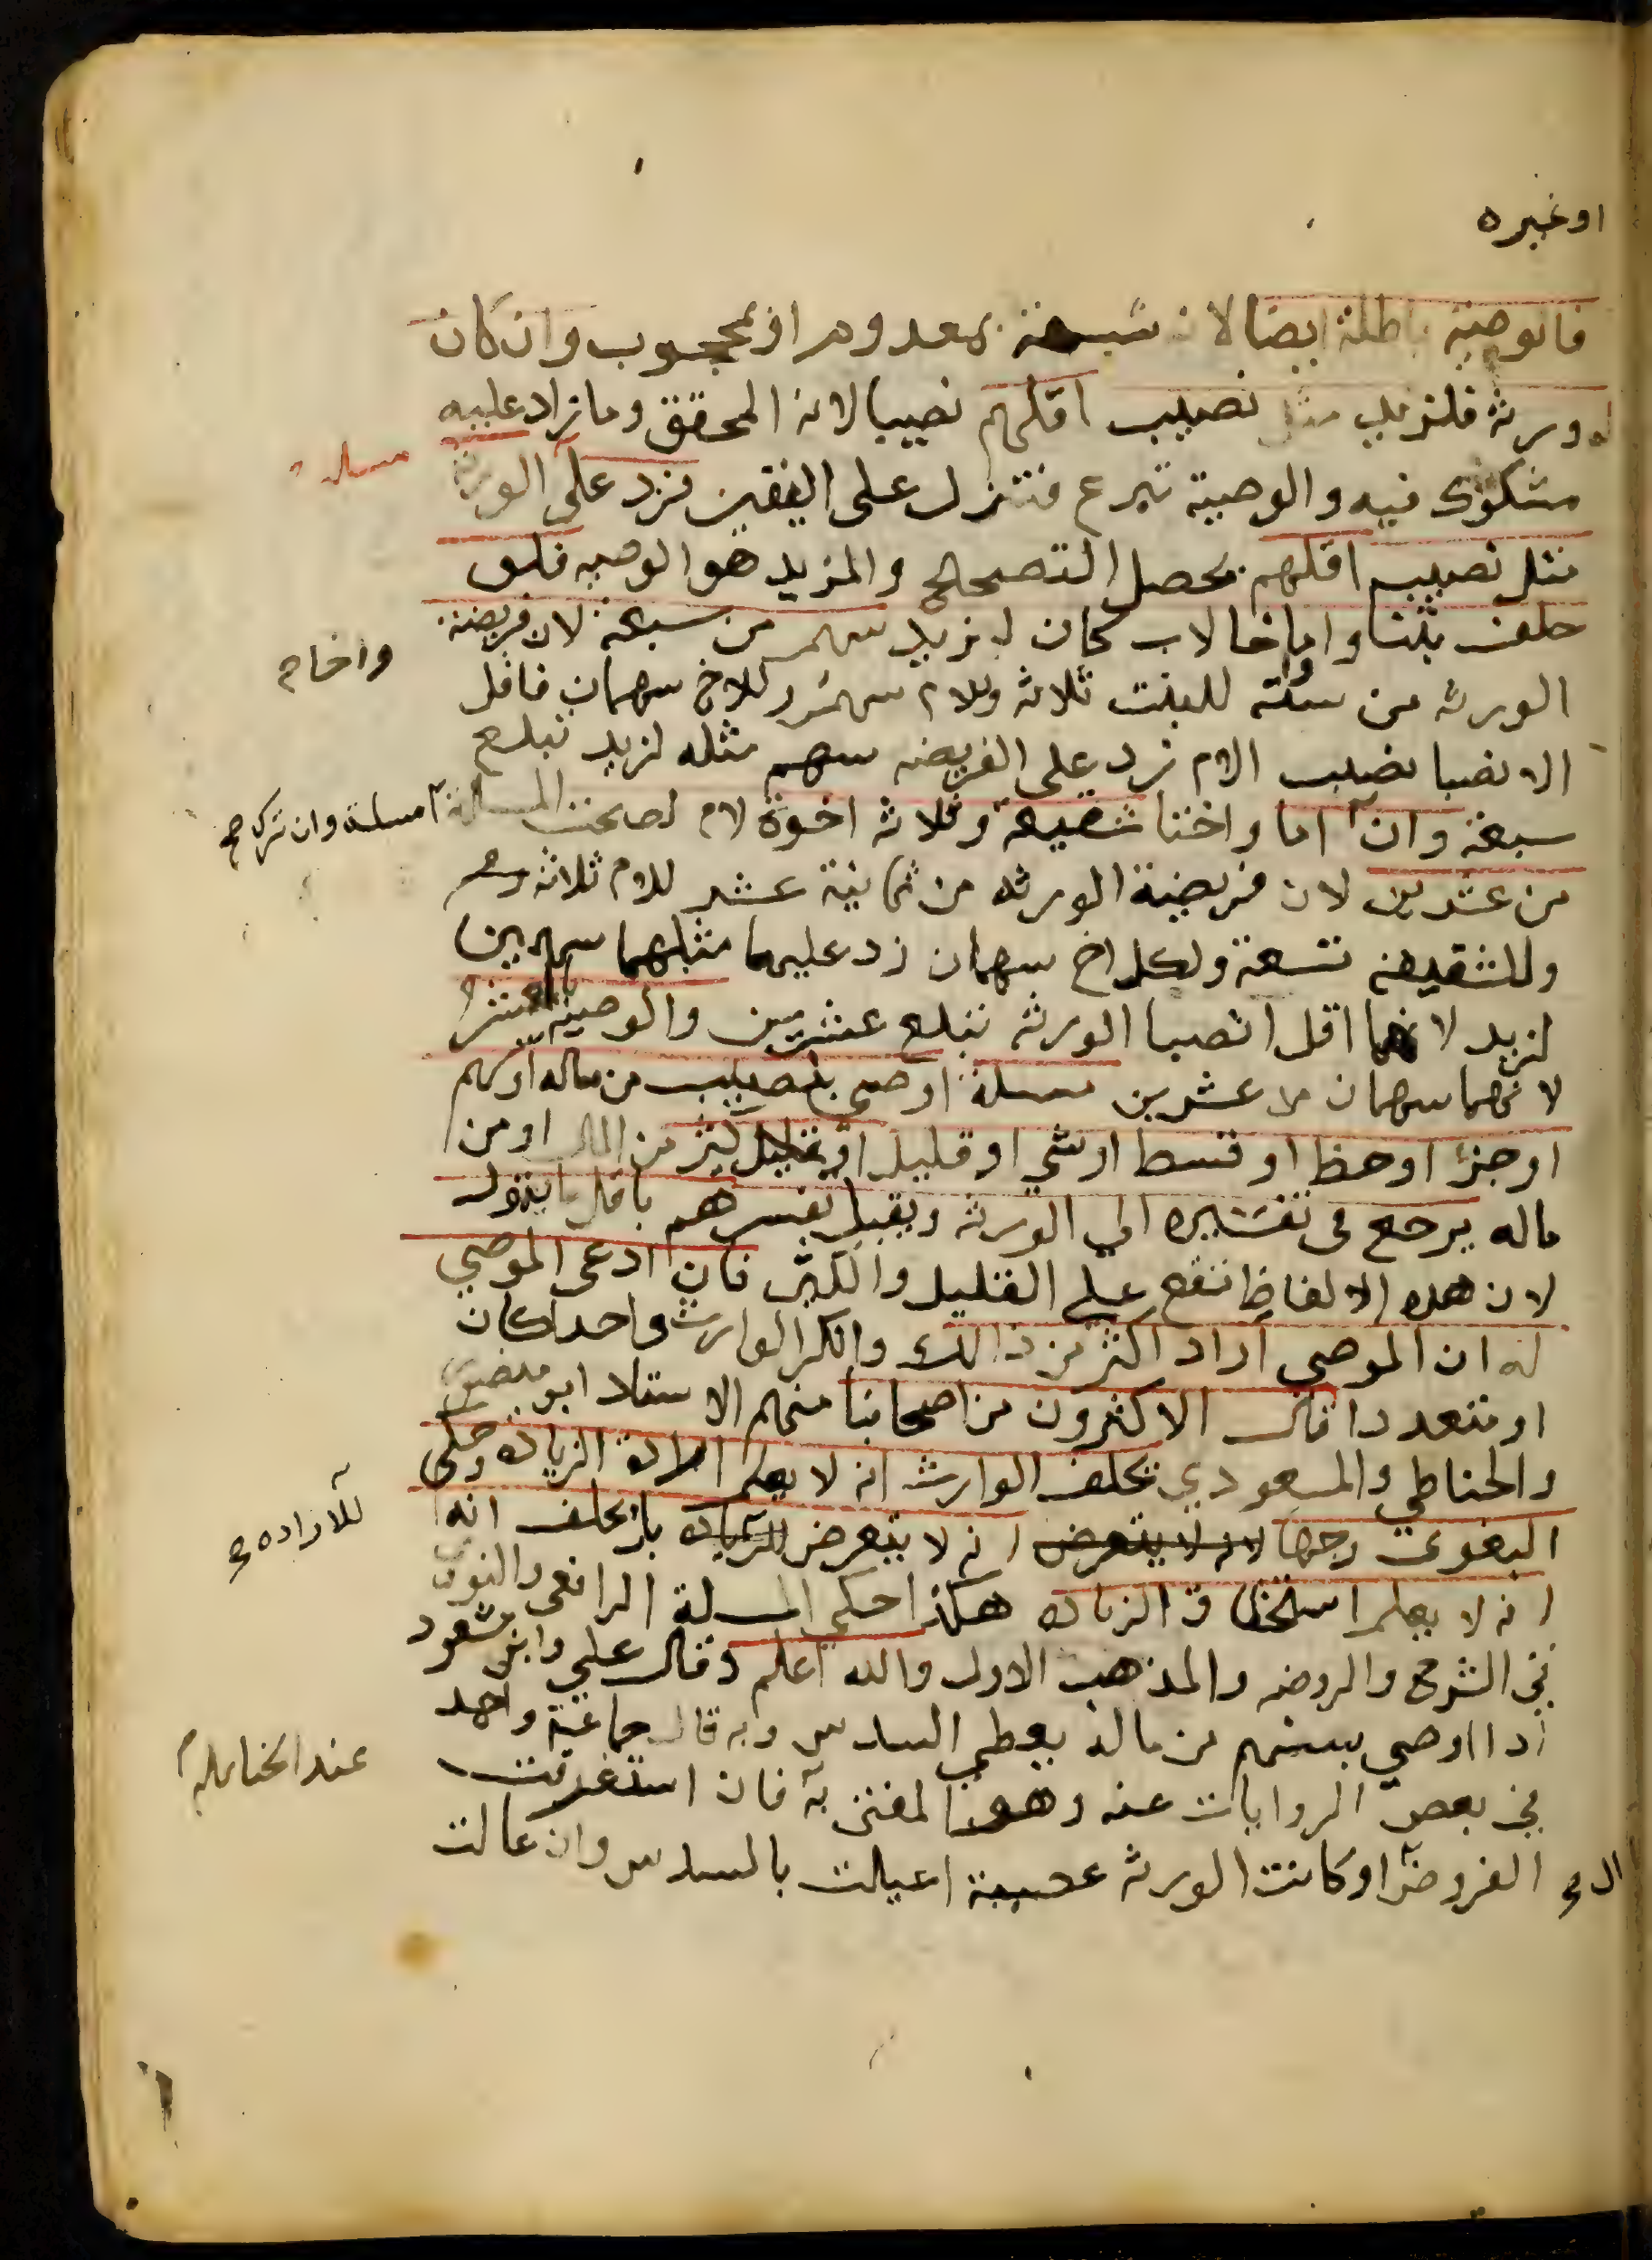 او غيره
فالوصية باطلة ايضا لانه شبهة بمعدوم او بمحجوب وان كان
له ورثة فلزيد مثل نصيب اقلهم نصيبا لانه المحقق وما زاد عليه
مسلة
مشكوك فيه والوصية تبرع فتنزل على اليقين فزد على الورثة
مثل نصيب اقلهم يحصل التصحيح والمزيد هو الوصيه فلو
خلف بنتا واما واخا لاب كان لزيد سهم من سبعة لان فريضة
واخا صح
الورثه من ستة للبنت ثلاثه وللام سهم وللاخ سهمان فاقل
الانصبا نصيب الام زد على الفريضه سهم مثله لزيد تبلغ
سبعة وان اما واختا شقيقة وثلاثه اخوة لام لصحت المسلة
مسلة وان ترك صح
من عشرين لان فريضة الورثه من ثمانية عشر للام ثلاثه
وللشقيقه تسعة ولكل اخ سهمان زد عليهما مثلهما سهمين
لزيد لانهما اقل انصبا الورثه تبلع عشرين والوصيه بالعشر
لانهما سهمان من عشرين مسلة اوصى بنصيب من ماله او سهم
او جزء او حظ او قسط او شي او قليل او كثير من المال او من
ماله يرجع في تفسيره الي الورثه ويقبل تفسيرهم باقل ما يتمول
لان هده الالفاظ تقع علي القليل والكثير فان ادعى الموصي
له ان الموصي اراد اكثر من ذالك وانكر الوارث واحدا كان
او متعددا قال الاكثرون من اصحابنا منهم الاستاد ابو منصور
والحناطي والمسعودي يحلف الوارث انه لا يعلم ارادة الزياده وحكى
البغوى وجها لانه لا يتعرض انه لا يتعرض للزياده بل يحلف انه
للاراده صح
انه لا يعلم استحقاق الزياده هكذا حكى المسلة الرافعي والنووي
في الشرح والروضه والمذهب الاول والله اعلم وقال علي وابن مسعود
اذا اوصي بسهم من ماله يعطى السدس وبه قال جماعة واحمد
في بعض الروايات عنه وهو المفتى به فان استغرقت
عند الحنابله
الفروض او كانت الورثه عصبة اعيلت بالسدس وان عالت